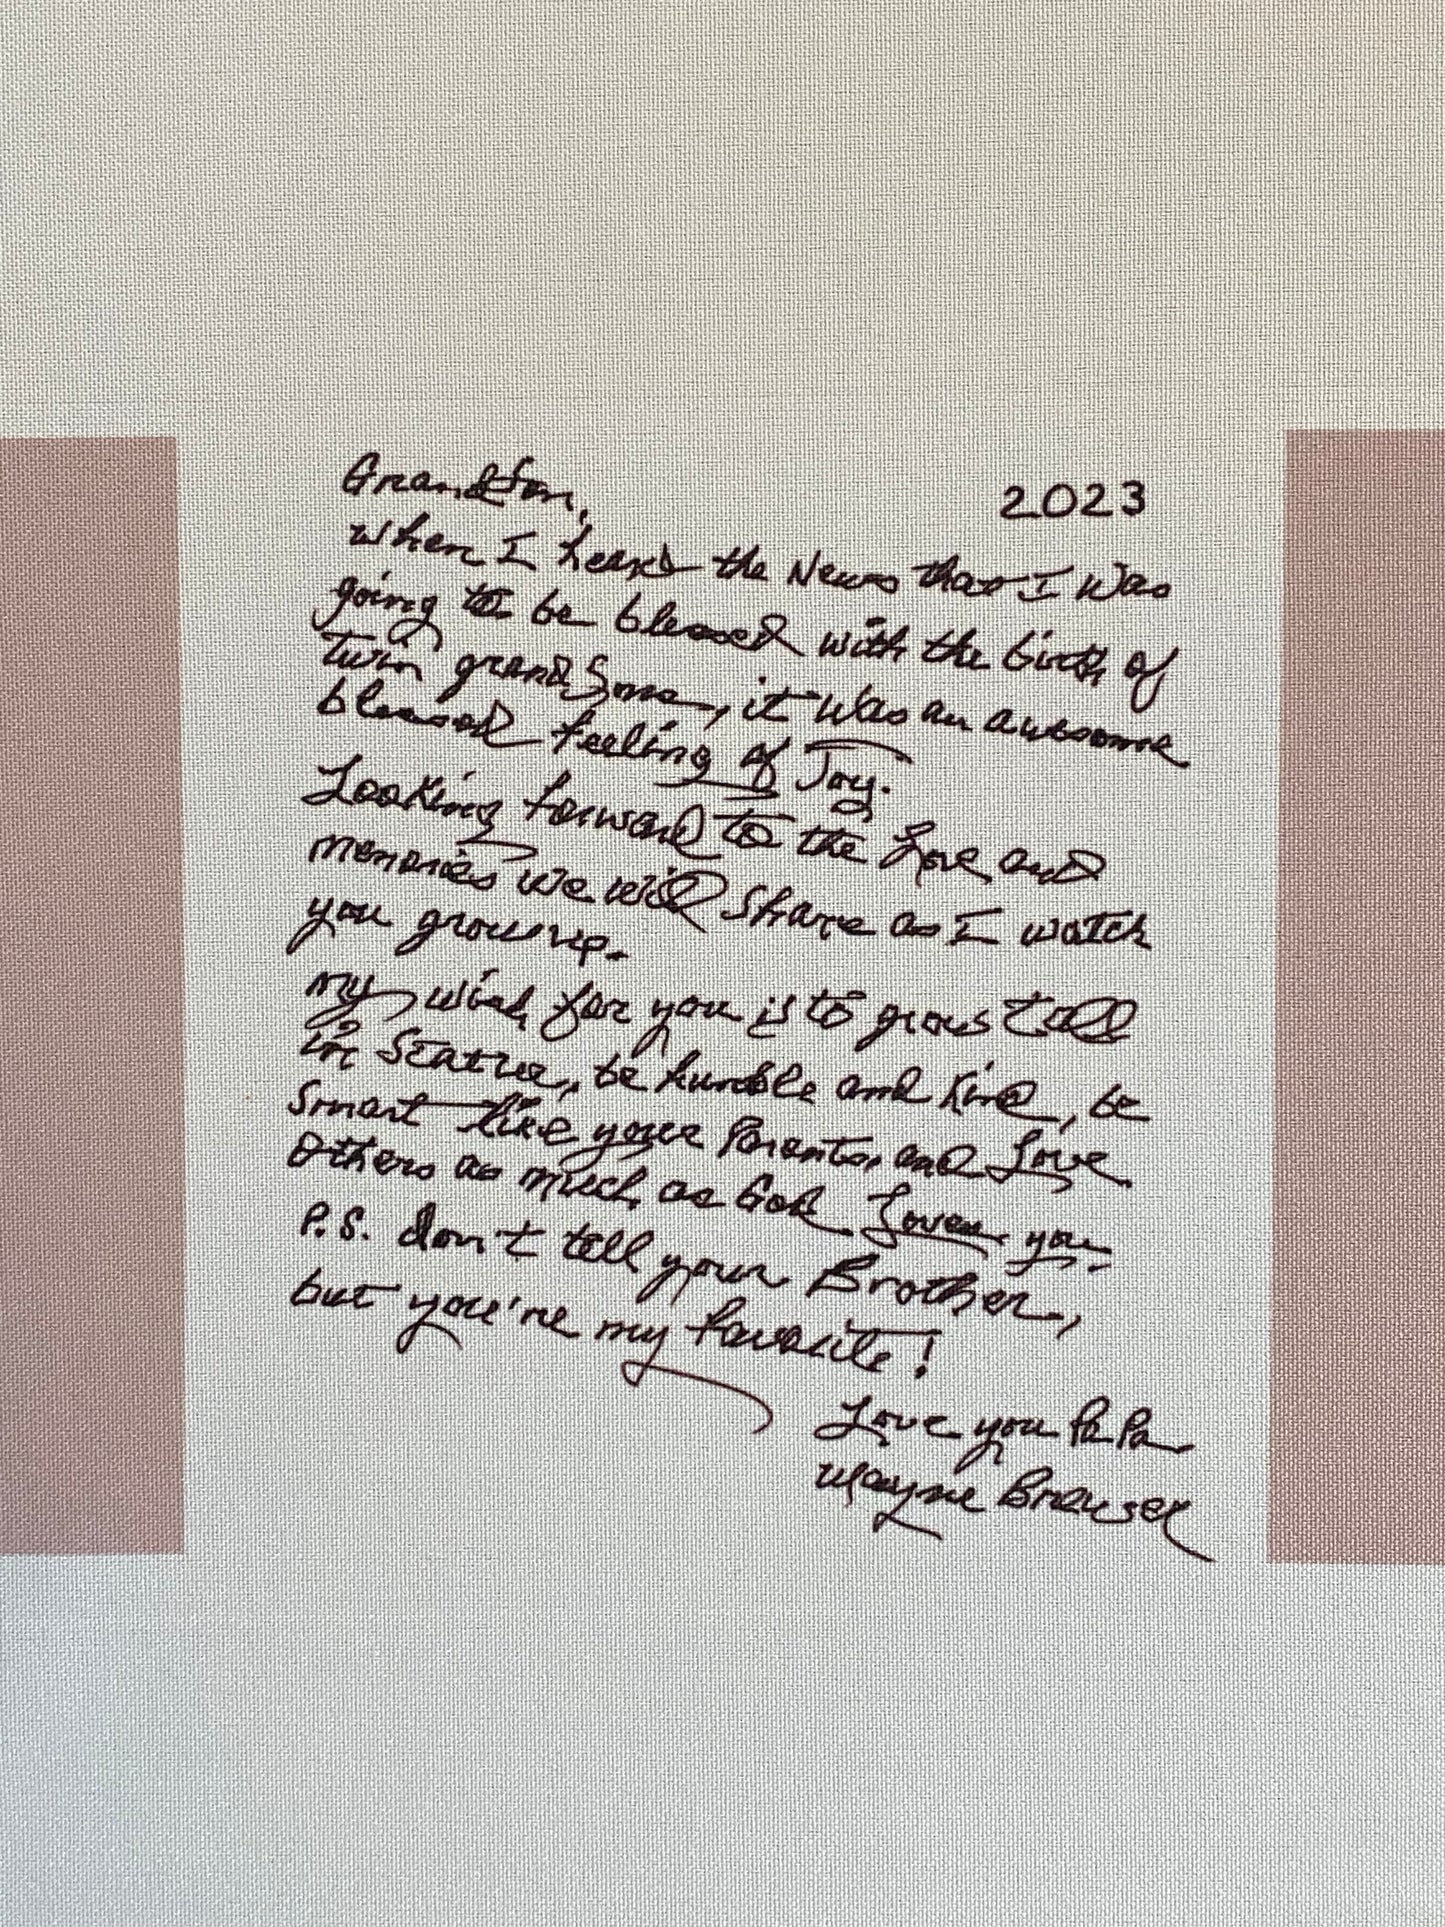 Grandson, 2023
when I heard the News that I was
going to be blessed with the birth of
twin grandSons, it was an awesome
blessed feeling of Joy.
Looking forward to the Love and
memories we will share as I watch
you grow up.
my wish for you is to grow tall
in Stature, be humble and kind, be
Smart like your Parents, and Love
others as much as God Loves you.
P.S. don't tell your Brother,
but you're my favorite!
Love you PaPa
Wayne Brewser